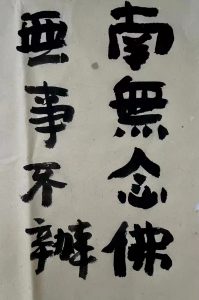 南無念佛
無事不辦